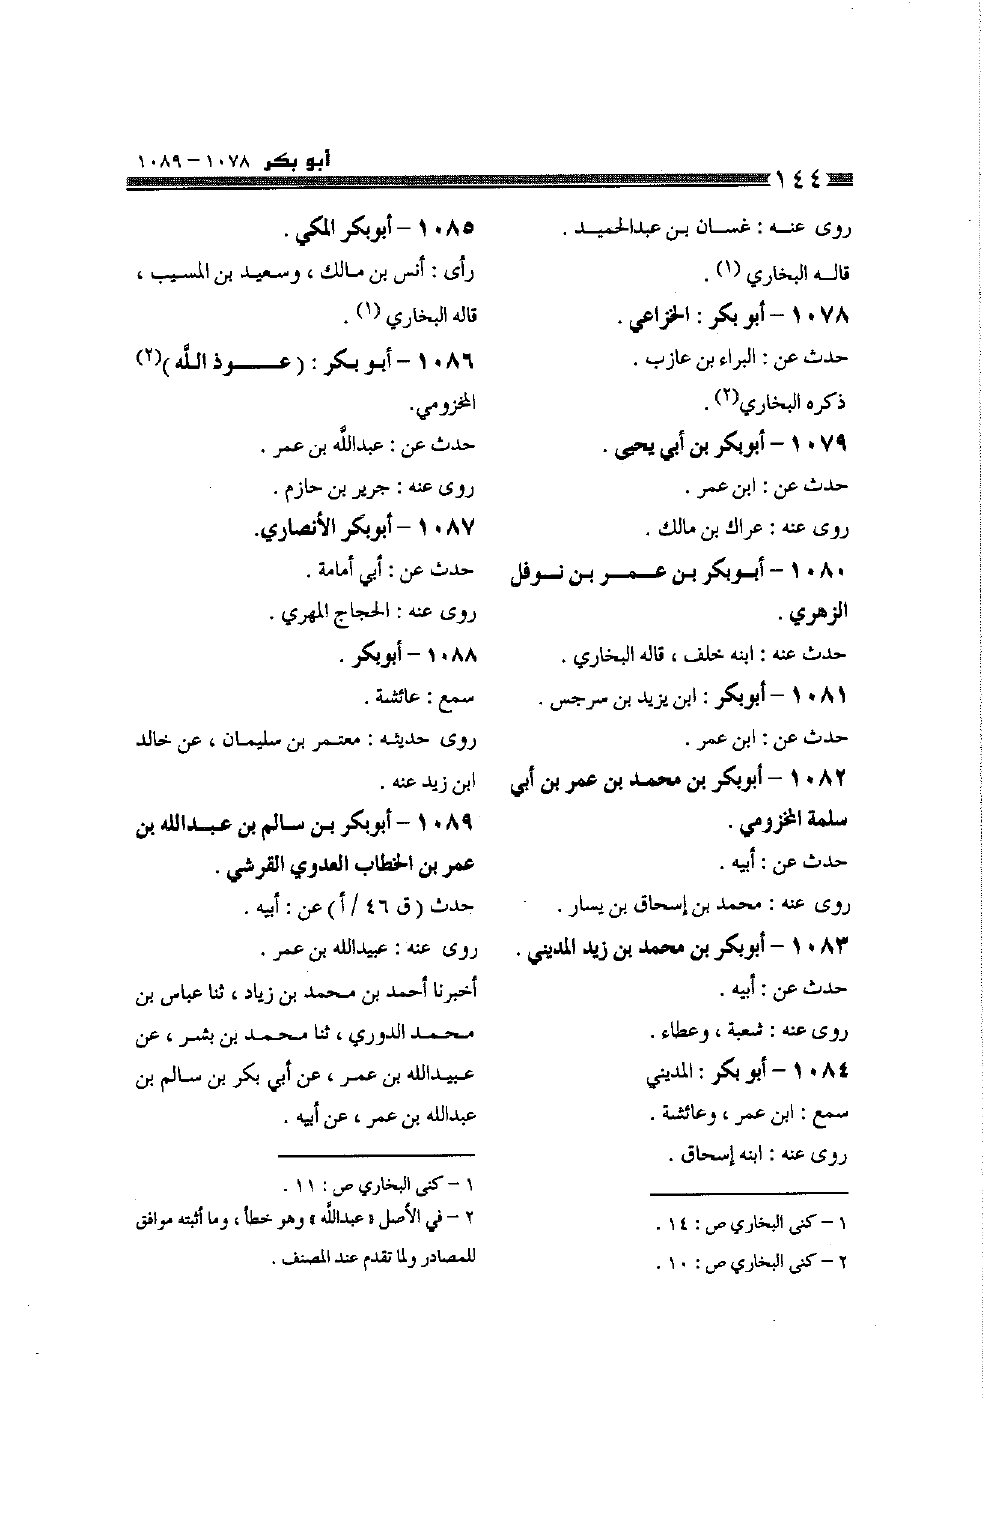 أبو بكر ١٠٧٨ – ١٠٨٩
١٤٤
روى عنه : غسان بن عبدالحميد .
قاله البخاري (١) .
١٠٧٨ – أبو بكر : الخزاعي .
حدث عن : البراء بن عازب .
ذكره البخاري(٢) .
١٠٧٩ – أبوبكر بن أبي يحيى .
حدث عن : ابن عمر .
روى عنه : عراك بن مالك .
١٠٨٠ – أبوبكر بن عمر بن نوفل
الزهري .
حدث عنه : ابنه خلف ، قاله البخاري .
١٠٨١ – أبوبكر : ابن يزيد بن سرجس .
حدث عن : ابن عمر .
١٠٨٢ – أبوبكر بن محمد بن عمر بن أبي
سلمة المخزومي .
حدث عن : أبيه .
روى عنه : محمد بن إسحاق بن يسار .
١٠٨٣ – أبوبكر بن محمد بن زيد المديني .
حدث عن : أبيه .
روى عنه : شعبة ، وعطاء .
١٠٨٤ – أبو بكر : المديني
سمع : ابن عمر ، وعائشة .
روى عنه : ابنه إسحاق .
١ – كنى البخاري ص : ١٤ .
٢ – كنى البخاري ص : ١٠ .
١٠٨٥ – أبوبكر المكي .
رأى : أنس بن مالك ، وسعيد بن المسيب ،
قاله البخاري (١) .
١٠٨٦ – أبو بكر : (عوذ الله)(٢)
المخزومي.
حدث عن : عبدالله بن عمر .
روى عنه : جرير بن حازم .
١٠٨٧ – أبوبكر الأنصاري.
حدث عن : أبي أمامة .
روى عنه : الحجاج المهري .
١٠٨٨ – أبوبكر .
سمع : عائشة .
روى حديثه : معتمر بن سليمان ، عن خالد
ابن زيد عنه .
١٠٨٩ – أبوبكر بن سالم بن عبدالله بن
عمر بن الخطاب العدوي القرشي .
حدث (ق ٤٦ / أ) عن : أبيه .
روى عنه : عبيدالله بن عمر .
أخبرنا أحمد بن محمد بن زياد ، ثنا عباس بن
محمد الدوري ، ثنا محمد بن بشر ، عن
عبيدالله بن عمر ، عن أبي بكر بن سالم بن
عبدالله بن عمر ، عن أبيه .
١ – كنى البخاري ص : ١١ .
٢ – في الأصل «عبدالله» وهو خطأ ، وما أثبته موافق
للمصادر ولما تقدم عند المصنف .